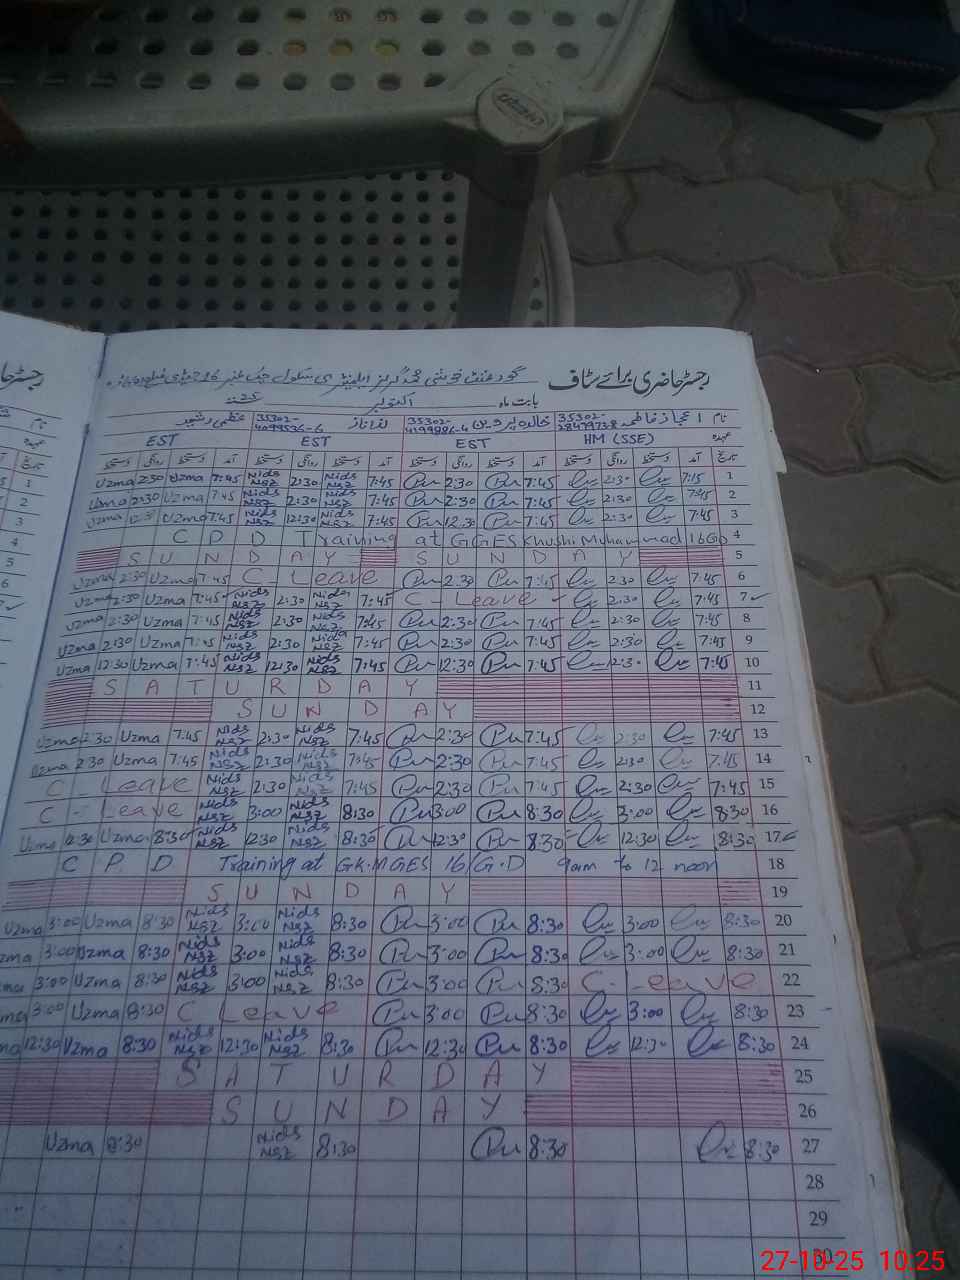 رجسٹر حاضری برائے سٹاف گورنمنٹ خوشی محمد گرلز ایلیمنٹری سکول چک نمبر 16
بابت ماہ اکتوبر 25
نام اعجاز فاطمہ 35302- خالدہ پروین 35302- 4199886-4 لذا ناز 35302- 4099536-6 عظمی رشید
عہدہ HM (SSE) EST EST EST
تاریخ آمد دستخط روانگی دستخط آمد دستخط روانگی دستخط آمد دستخط روانگی دستخط آمد دستخط روانگی دستخط
Uzma 2:30 Uzma 7:45 Nids NSZ 2:30 Nids NSZ 7:45 2:30 7:45 2:30 7:15 1
Uzma 2:30 Uzma 7:45 Nids NSZ 2:30 Nids NSZ 7:45 2:30 7:45 2:30 7:45 2
Uzma 12:30 Uzma 7:45 Nids NSZ 12:30 Nids NSZ 7:45 12:30 7:45 12:30 7:45 3
C P D Training at GGES Khushi Muhammad 16GD 4
S U N D A Y S U N D A Y 5
Uzma 2:30 Uzma 7:45 C-Leave 2:30 7:45 2:30 7:45 6
Uzma 2:30 Uzma 7:45 Nids NSZ 2:30 Nids NSZ 7:45 C-Leave 2:30 7:45 7
Uzma 2:30 Uzma 7:45 Nids NSZ 2:30 Nids NSZ 7:45 2:30 7:45 2:30 7:45 8
Uzma 2:30 Uzma 7:45 Nids NSZ 2:30 Nids NSZ 7:45 2:30 7:45 2:30 7:45 9
Uzma 12:30 Uzma 7:45 Nids NSZ 12:30 Nids NSZ 7:45 12:30 7:45 12:30 7:45 10
S A T U R D A Y 11
S U N D A Y 12
Uzma 2:30 Uzma 7:45 Nids NSZ 2:30 Nids NSZ 7:45 2:30 7:45 2:30 7:45 13
Uzma 2:30 Uzma 7:45 Nids NSZ 2:30 Nids NSZ 7:45 2:30 7:45 2:30 7:45 14
C-Leave Nids NSZ 2:30 Nids NSZ 7:45 2:30 7:45 2:30 7:45 15
C-Leave Nids NSZ 3:00 Nids NSZ 8:30 3:00 8:30 3:00 8:30 16
Uzma 12:30 Uzma 8:30 Nids NSZ 12:30 Nids NSZ 8:30 12:30 8:30 12:30 8:30 17
C P D Training at GKMGES 16/G.D 9am to 12 noon 18
S U N D A Y 19
Uzma 3:00 Uzma 8:30 Nids NSZ 3:00 Nids NSZ 8:30 3:00 8:30 3:00 8:30 20
zma 3:00 Uzma 8:30 Nids NSZ 3:00 Nids NSZ 8:30 3:00 8:30 3:00 8:30 21
ma 3:00 Uzma 8:30 Nids NSZ 3:00 Nids NSZ 8:30 3:00 8:30 C-Leave 22
ma 3:00 Uzma 8:30 C Leave 3:00 8:30 3:00 8:30 23
ma 12:30 Uzma 8:30 Nids NSZ 12:30 Nids NSZ 8:30 12:30 8:30 12:30 8:30 24
S A T U R D A Y 25
S U N D A Y 26
Uzma 8:30 Nids NSZ 8:30 8:30 8:30 27
28
29
30
27-10-25 10:25